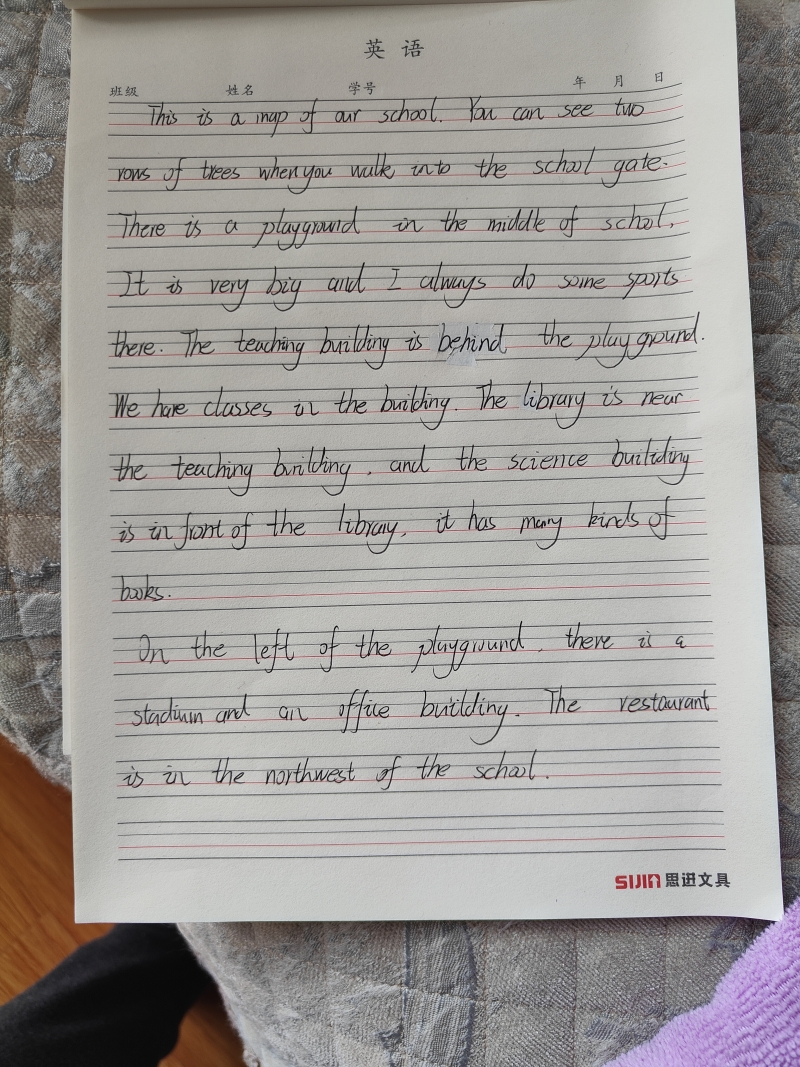 英 语
班级 姓名 学号 年 月 日
This is a map of our school. You can see two
rows of trees when you walk into the school gate.
There is a playground in the middle of school,
It is very big and I always do some sports
there. The teaching building is behind the playground.
We have classes in the building. The library is near
the teaching building, and the science builiding
is in front of the library, it has many kinds of
books.
On the left of the playground, there is a
stadium and an office building. The restaurant
is in the northwest of the school.
SIJIN 思进文具